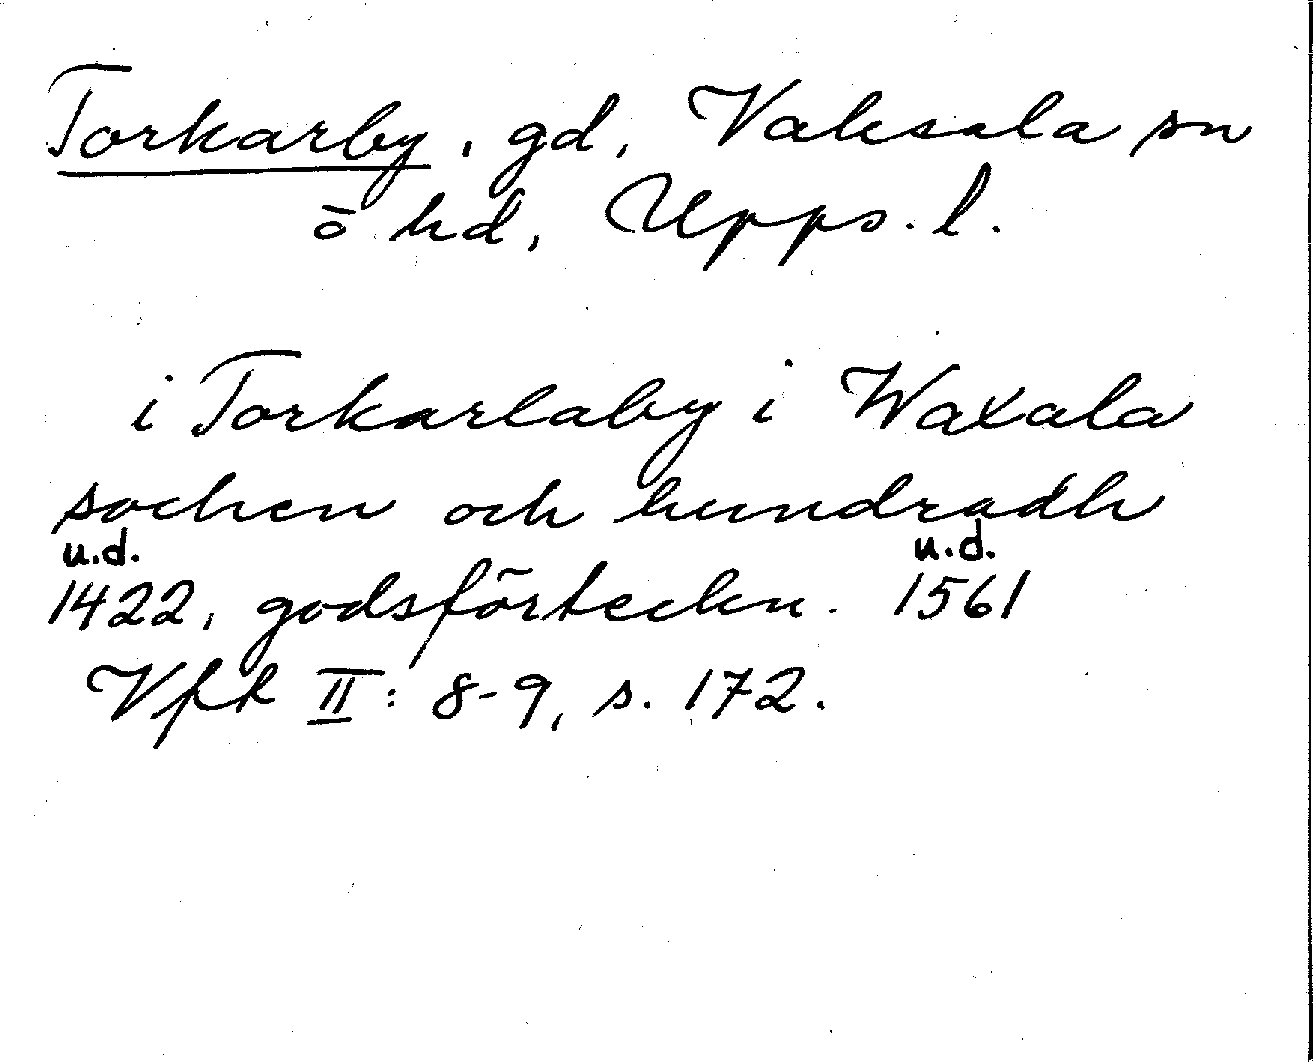 Torkarby, gd, Vaksala sn
ö hd, Upps. l.
i Torkarlaby i Waxala
sochen och hundradh
u.d. u.d.
1422, godsförteckn. 1561
Vfk II: 8-9, s. 172.